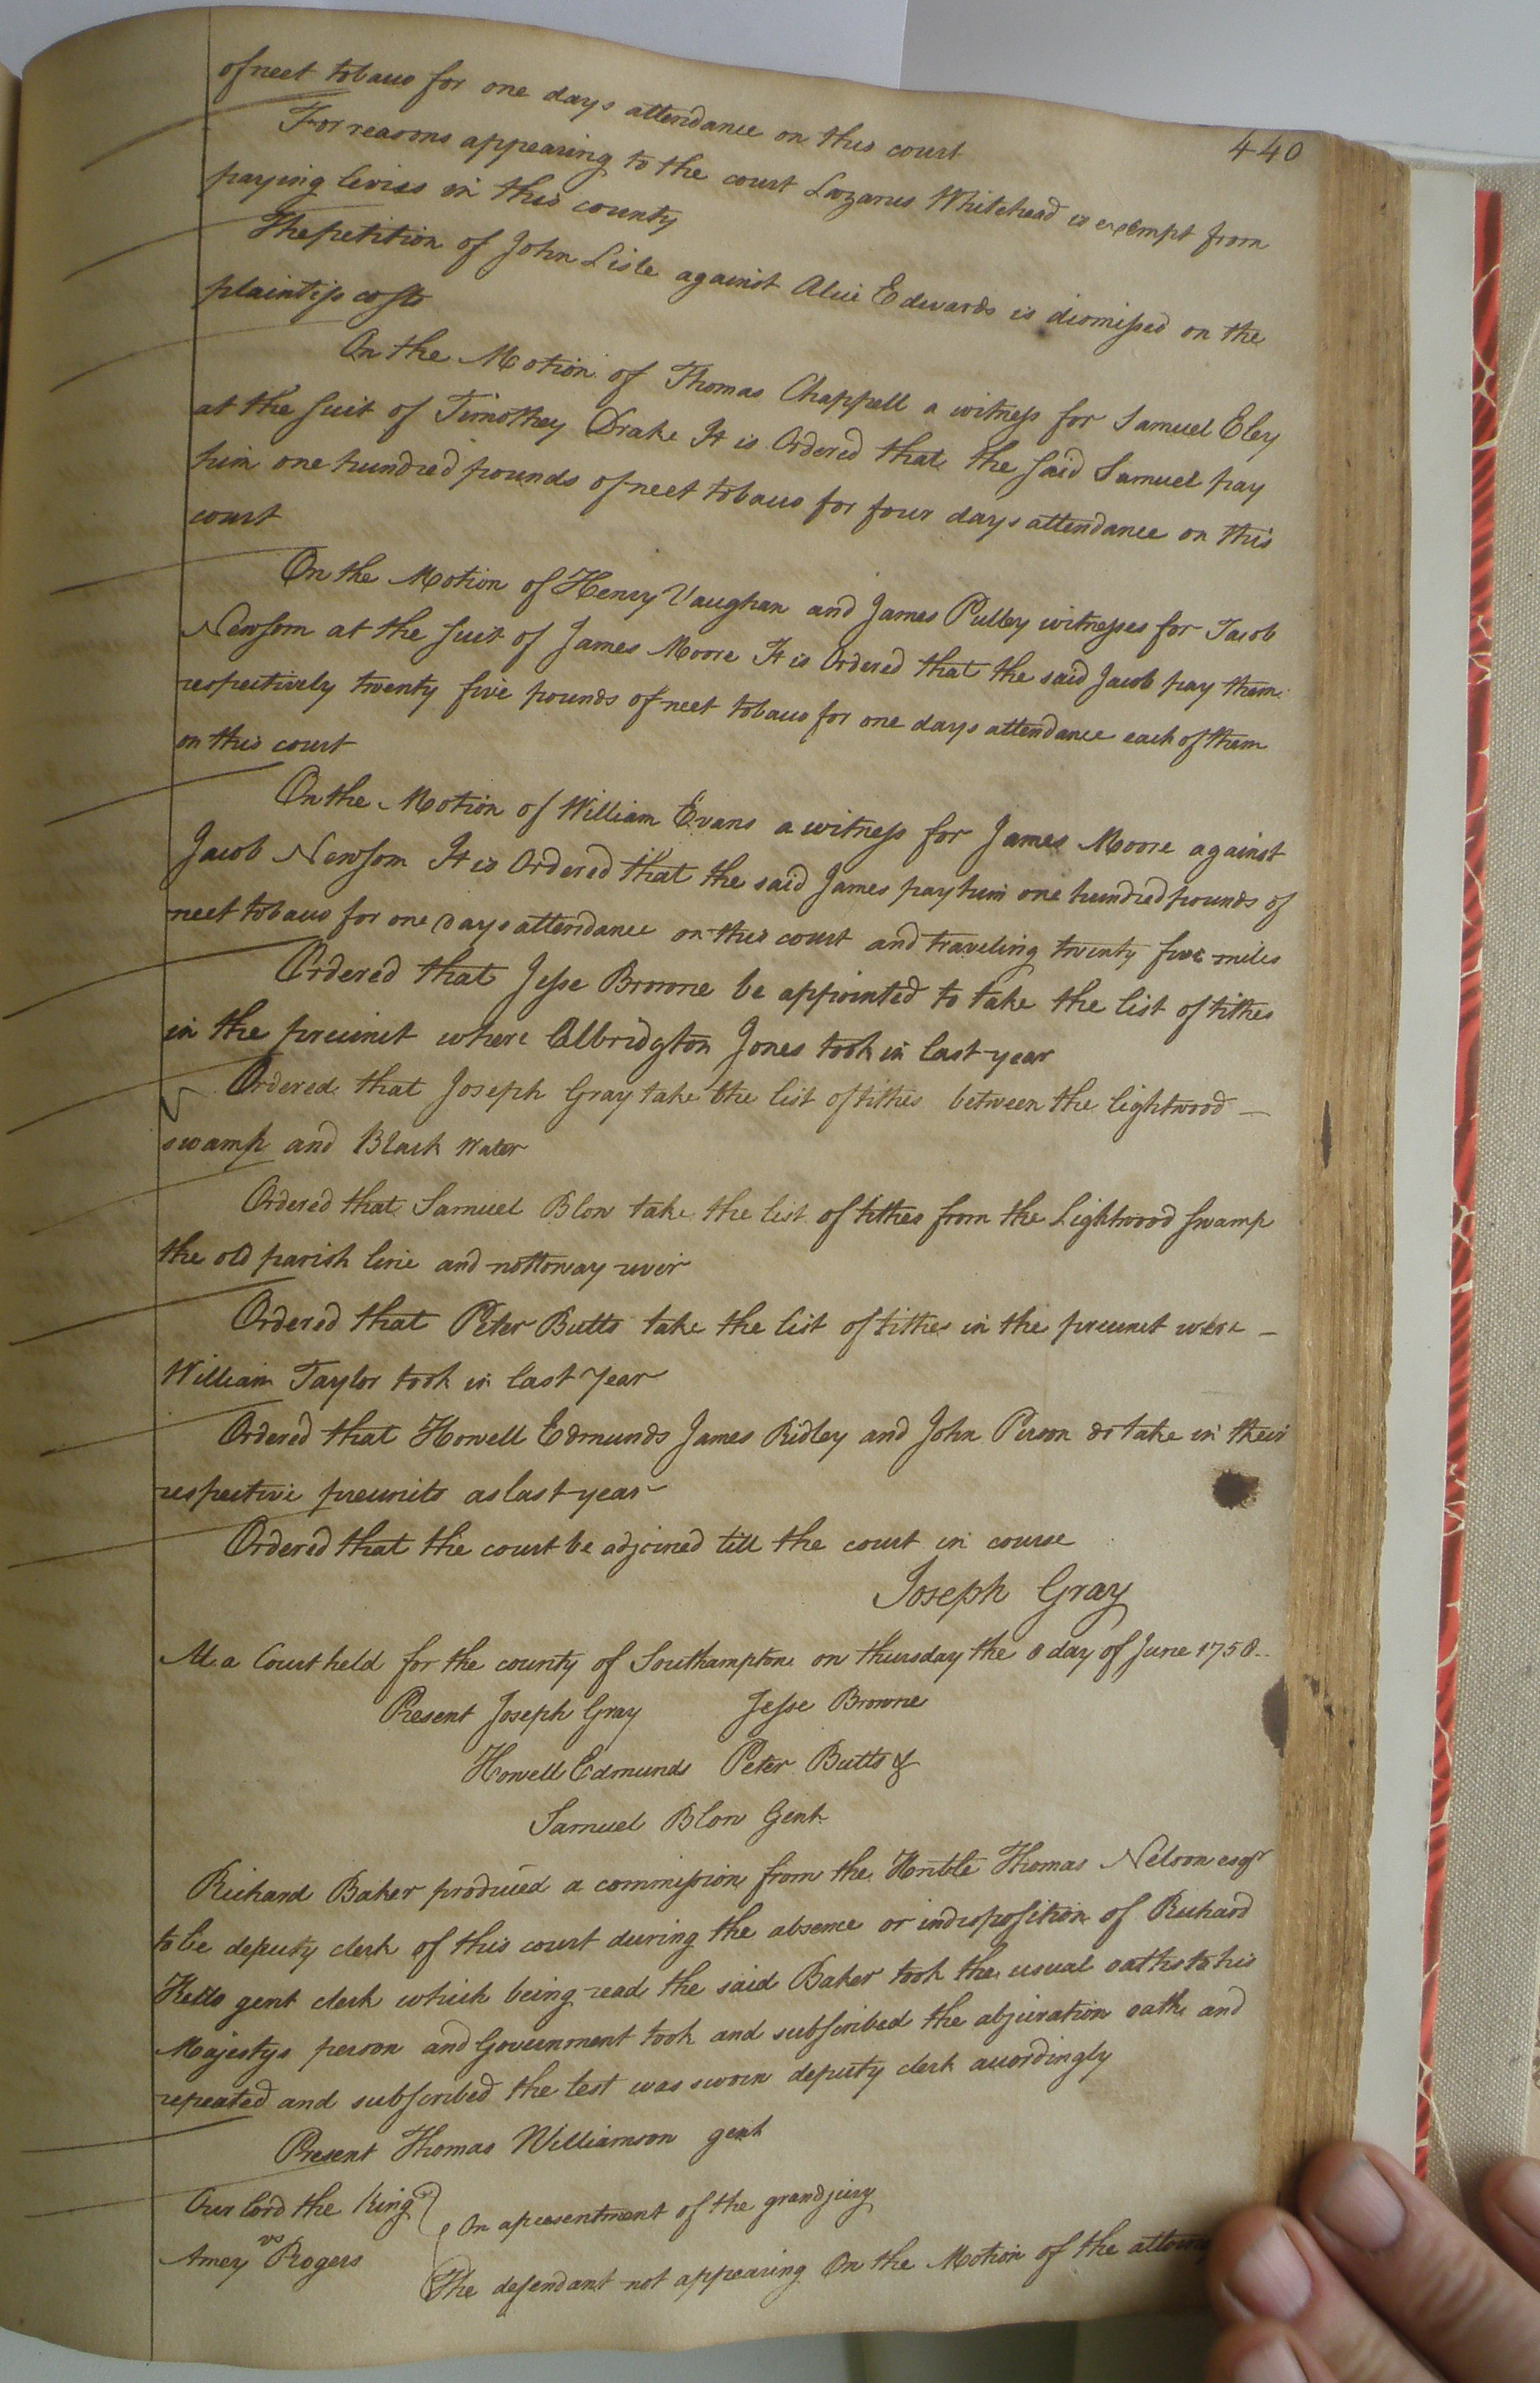 440
of neet tobacco for one days attendance on this court
For reasons appearing to the court Lazarus Whitehead is exempt from
paying levies in this county
The petition of John Lisle against Alice Edwards is dismissed on the
plaintifs costs
On the Motion of Thomas Chappell a witness for Samuel Eley
at the suit of Timothey Drake It is Ordered that the said Samuel pay
him one hundred pounds of neet tobacco for four days attendance on this
court
On the Motion of Henry Vaughan and James Pulley witnesses for Jacob
Newsom at the suit of James Moore It is Ordered that the said Jacob pay them
respectively twenty five pounds of neet tobacco for one days attendance each of them
on this court
On the Motion of William Evans a witness for James Moore against
Jacob Newsom It is Ordered that the said James pay him one hundred pounds of
neet tobacco for one days attendance on this court and traveling twenty five miles
Ordered that Jesse Browne be appointed to take the list of tithes
in the precinct where Albridgton Jones took in last year
Ordered that Joseph Gray take the list of tithes between the lightwood
swamp and Black Water
Ordered that Samuel Blow take the list of tithes from the Lightwood swamp
the old parish line and nottoway river
Ordered that Peter Butts take the list of tithes in the precinct were
William Taylor took in last year
Ordered that Howell Edmunds James Ridley and John Person do take in their
respective precincts as last year
Ordered that the court be adjoined till the court in course
Joseph Gray
At a Court held for the county of Southampton on thursday the 8 day of June 1758
Present Joseph Gray Jesse Browne
Howell Edmunds Peter Butts &
Samuel Blow Gent
Richard Baker produced a commission from the Honble Thomas Nelson esqr
to be deputy clerk of this court during the absence or indisposition of Richard
Kello gent clerk which being read the said Baker took the usual oaths to his
Majestys person and Government took and subscribed the abjuration oath and
repeated and subscribed the test was sworn deputy clerk accordingly
Present Thomas Williamson gent
Our lord the King
vs
Amey Rogers
On a presentment of the grandjury
The defendant not appearing On the Motion of the